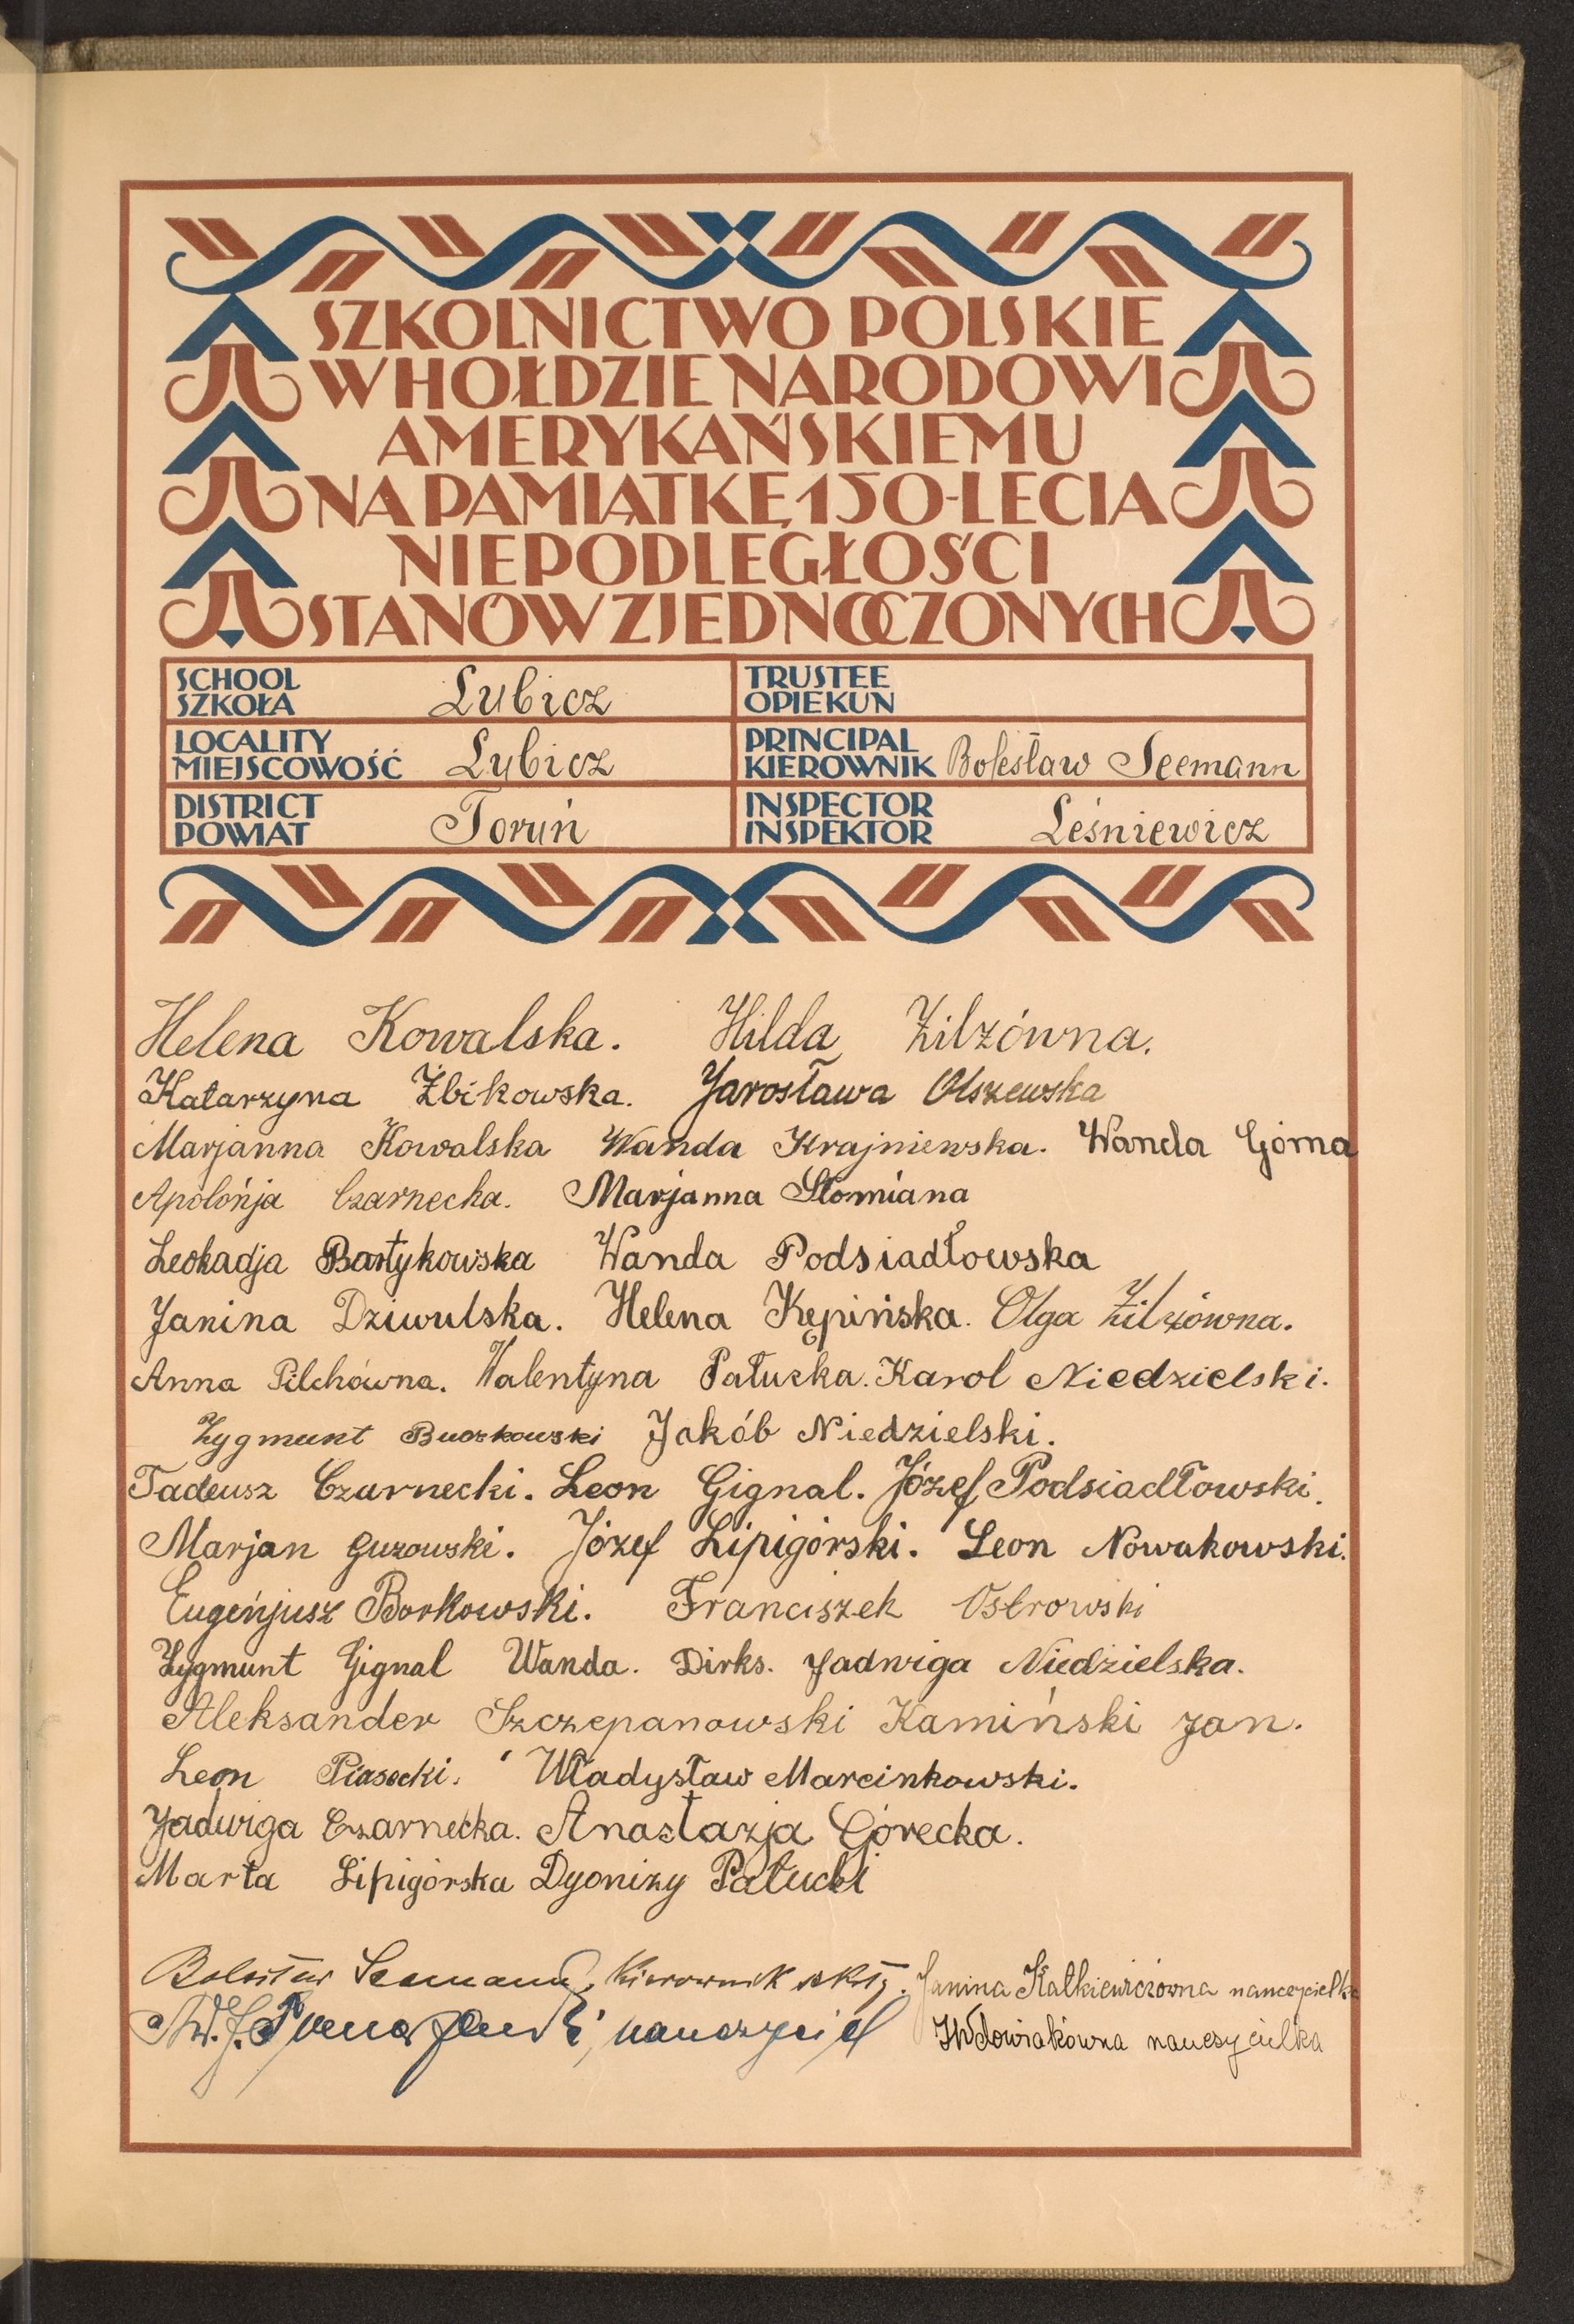 SZKOLNICTWO POLSKIE
W HOŁDZIE NARODOWI
AMERYKAŃSKIEMU
NA PAMIĄTKĘ 150-LECIA
NIEPODLEGŁOŚCI
STANÓW ZJEDNOCZONYCH
SCHOOL
SZKOŁA Lubicz
TRUSTEE
OPIEKUN
LOCALITY
MIEJSCOWOŚĆ Lubicz
PRINCIPAL
KIEROWNIK Bolesław Seemann
DISTRICT
POWIAT Toruń
INSPECTOR
INSPEKTOR Leśniewicz
Helena Kowalska. Hilda Zilzówna.
Katarzyna Żbikowska. Jarosława Olszewska
Marjanna Kowalska Wanda Krajniewska. Wanda Górna
Apolońja Czarnecka. Marjanna Słomiana
Leokadja Bartykowska Wanda Podsiadłowska
Janina Dziwulska. Helena Kępińska. Olga Zilzówna.
Anna Pilchówna. Walentyna Pałucka. Karol Niedzielski.
Zygmunt Buczkowski Jakób Niedzielski.
Tadeusz Czarnecki. Leon Gignal. Józef Podsiadłowski.
Marjan Guzowski. Józef Lipigórski. Leon Nowakowski.
Eugeńjusz Borkowski. Franciszek Ostrowski
Zygmunt Gignal Wanda. Dirks. Jadwiga Niedzielska.
Aleksander Szczepanowski Kamiński Jan.
Leon Piasecki. Władysław Marcinkowski.
Jadwiga Czarnecka. Anastazja Górecka.
Marta Lipigórska Dyonizy Pałucki
Bolesław Seemann, Kierownik szkoły. Janina Kałkiewiczówna nauczycielka
nauczyciel Wdowiakówna nauczycielka